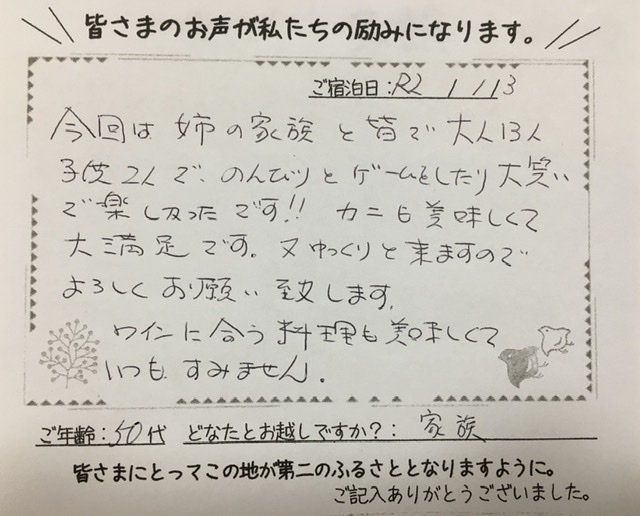 皆さまのお声が私たちの励みになります。
ご宿泊日:R2 1/13
今回は姉の家族と皆で大人13人
子供2人で、のんびりとゲームをしたり大笑い
で楽しかったです!!カニも美味しくて
大満足です。又ゆっくりと来ますので
よろしくお願い致します。
ワインに合う料理も美味しくて
いつもすみません。
ご年齢:50代 どなたとお越しですか?:家族
皆さまにとってこの地が第二のふるさととなりますように。
ご記入ありがとうございました。